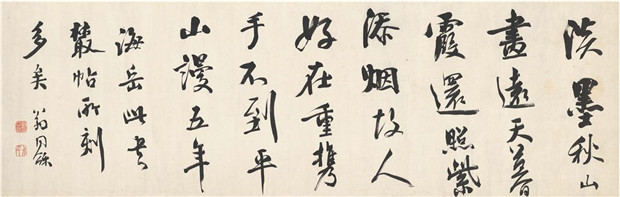 淡墨秋山
畫遠天暮
霞還照紫
添烟故人
好在重攜
手不到平
山謾五年
海岳此書
叢帖所刻
多矣 翁同龢